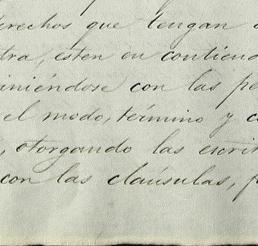 derechos que tengan
tra, esten en contiend
iniéndose con las pe
el modo, término y c
, otorgando las escrit
con las claúsulas, p